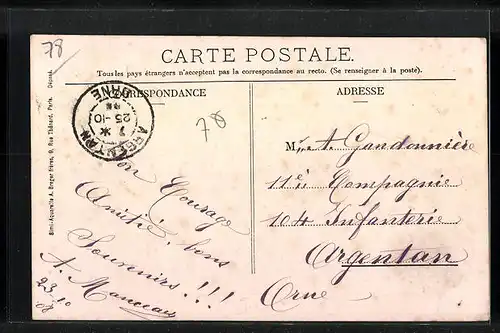 78
CARTE POSTALE.
Tous les pays étrangers n'acceptent pas la correspondance au recto. (Se renseigner à la poste).
RRESPONDANCE
ADRESSE
ARGENTAN
7 *
25-10
ORNE
78
Mr A. Gandonnière
11è Compagnie
104 Infanterie
Argentan
Orne
Bon Courage
Amitié, bons
Souvenirs!!!
A. Manceau
23-10
08
Simi-Aquarelle A. Breger frères, 9, Rue Thénard, Paris. Déposé.